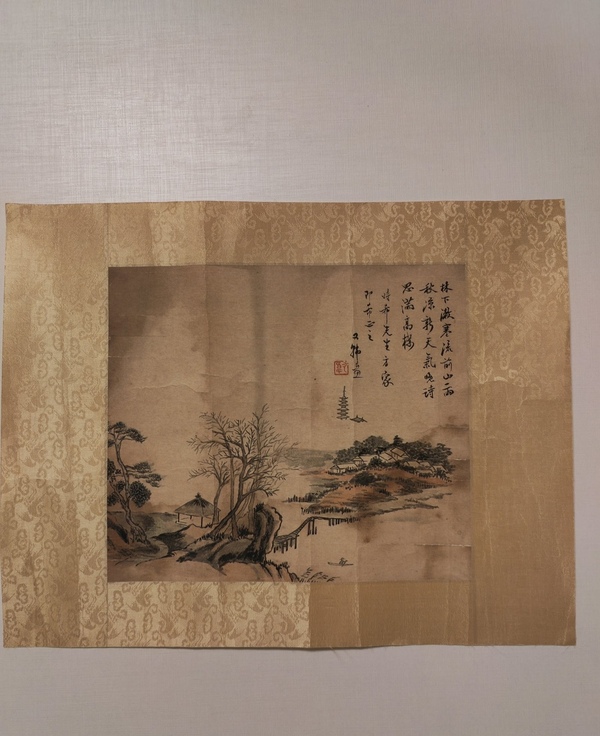 林下寒流前山雨
秋涼新天氣晚詩
思滿高樓
先生方家
即希正之